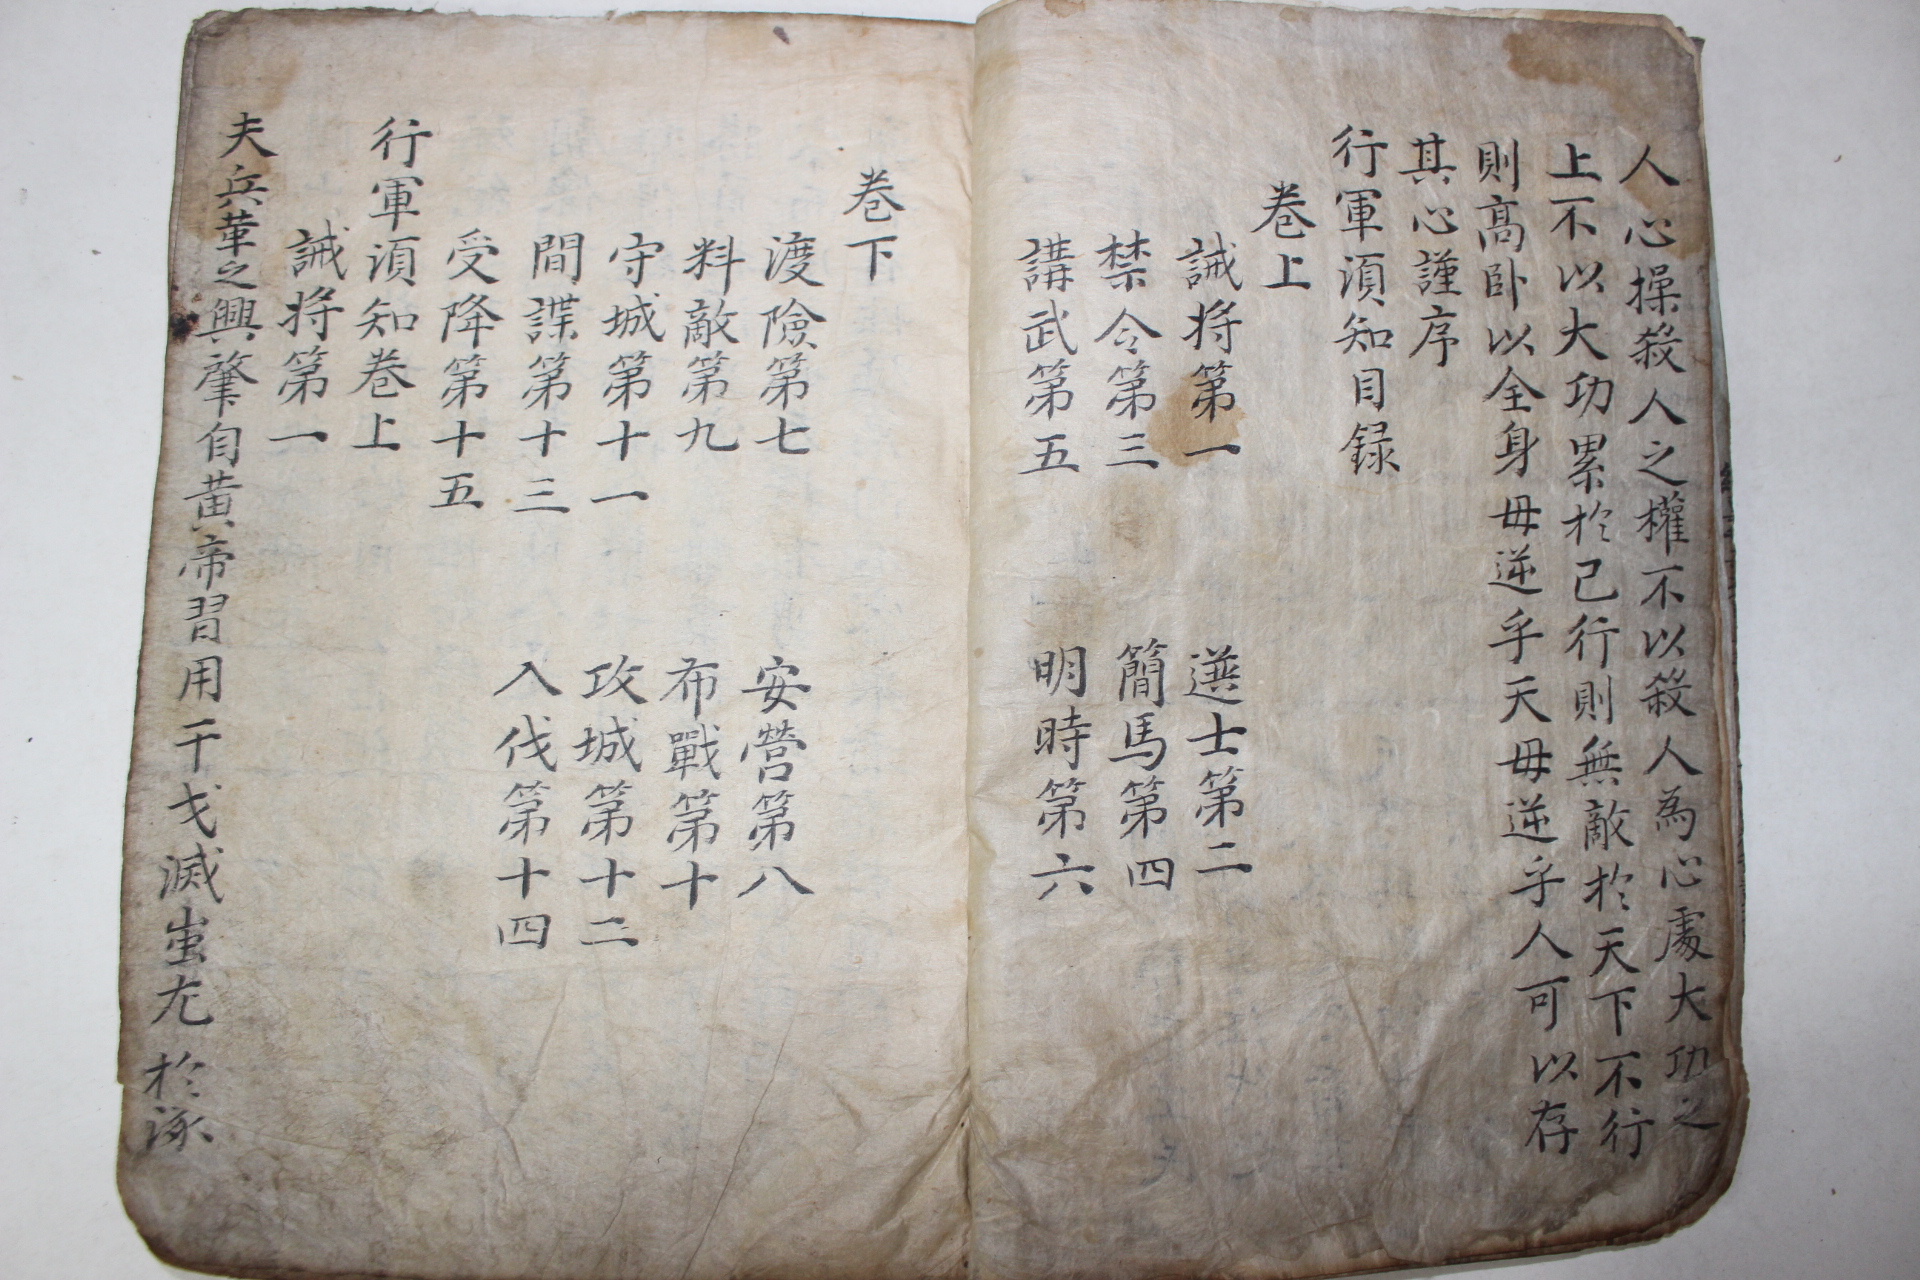 人心操殺人之權不以殺人為心處大功之
上不以大功累於己行則無敵於天下不行
則高卧以全身毋逆乎天毋逆乎人可以存
其心謹序
行軍須知目録
卷上
誡将第一 選士第二
禁令第三 簡馬第四
講武第五 明時第六
卷下
渡險第七 安營第八
料敵第九 布戰第十
守城第十一 攻城第十二
間諜第十三 入伐第十四
受降第十五
行軍須知卷上
誡将第一
夫兵革之興肇自黄帝習用干戈滅蚩尤於涿